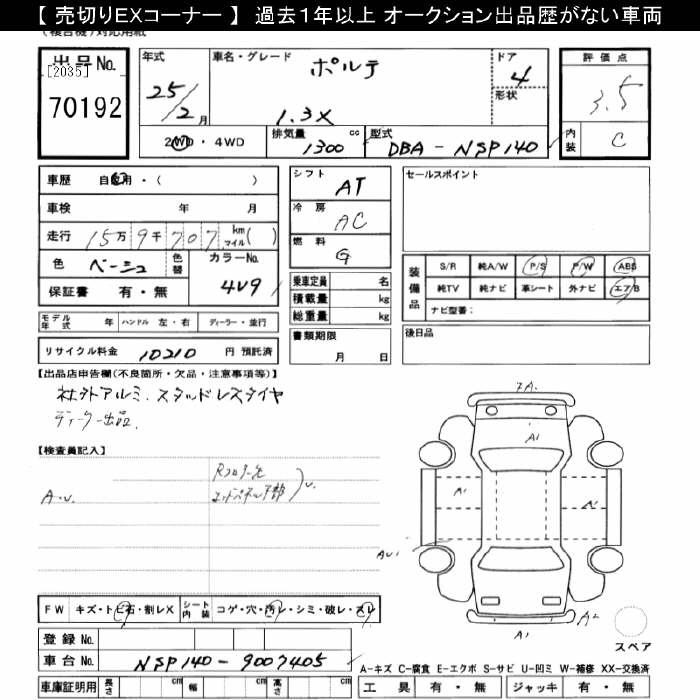 【 売切りEXコーナー 】 過去１年以上 オークション出品歴がない車両
出 品 No.
[2035]
70192
年式
25/2月
車名・グレード
ポルテ
1.3X
ドア
4
形状
評 価 点
3.5
内装
C
2WD・4WD
排気量
1300 cc
型式
DBA - NSP140
車歴 自家用・( )
車検 年 月
走行 15万 9千 707 km マイル( )
色 ベージュ
色替
カラーNo.
4V9
保証書 有・無
シフト
AT
冷 房
AC
燃 料
G
セールスポイント
乗車定員 名
積載量 kg
総重量 kg
装備品
S/R 純A/W P/S P/W ABS
純TV 純ナビ 革シート 外ナビ エアB
ナビ型番:
モデル年式 年 ハンドル 左・右 ディーラー・並行
書類期限
月 日
後日品
リサイクル料金 10210 円 預託済
【出品店申告欄(不良箇所・欠品・注意事項等)】
社外アルミ. スタッドレスタイヤ
ディーラー出品.
【検査員記入】
A.U.
Rフロアー先
エンドパネル下部
U.
7A.
A1
A1
A1
AU1
A2
A1
スペア
FW キズ・トビ石・割レX シート内装 コゲ・穴・汚レ・シミ・破レ・スレ
登録 No.
車台 No. NSP140-9007405
車庫証明用 長さ cm 幅 cm 高さ cm
A−キズ C−腐食 E−エクボ S−サビ U−凹ミ W−補修 XX−交換済
工 具 有・無 ジャッキ 有・無